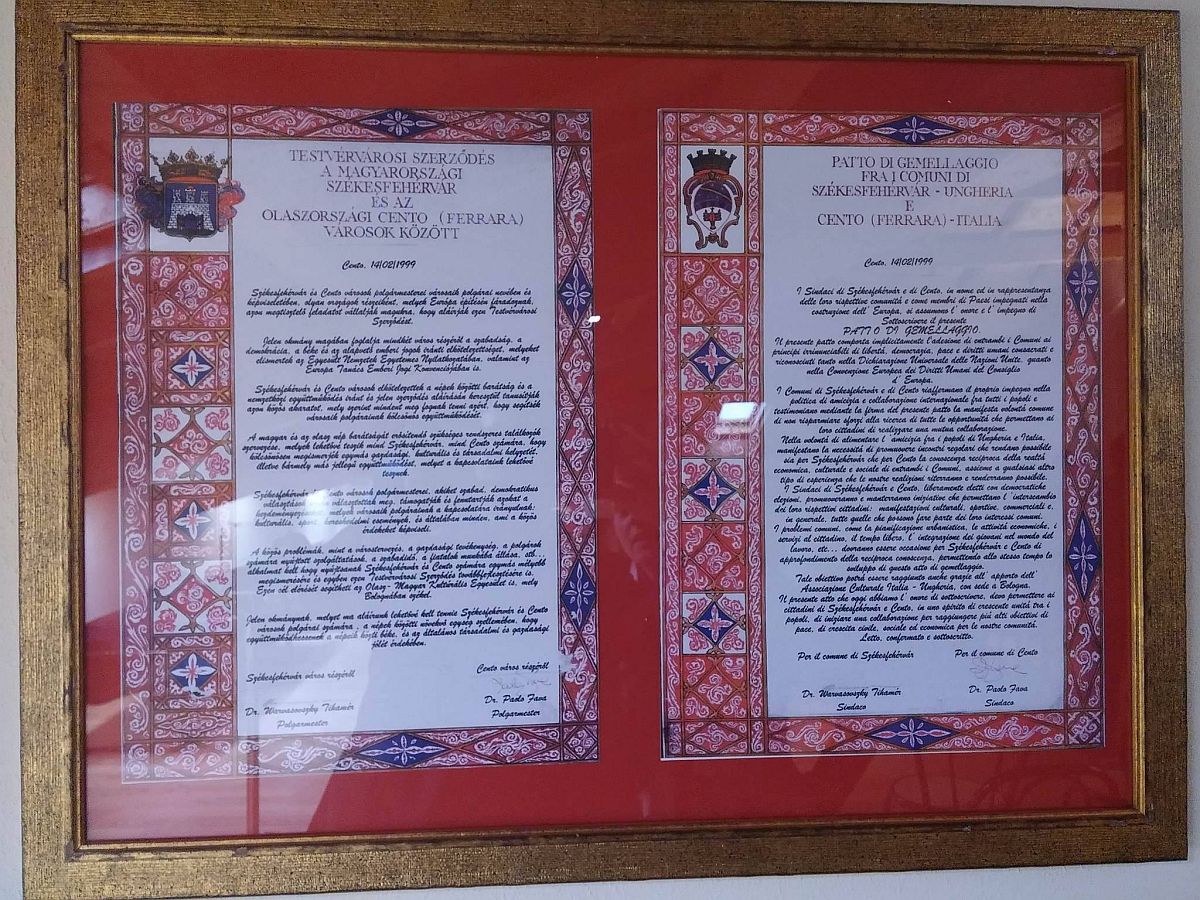 TESTVÉRVÁROSI SZERZŐDÉS
A MAGYARORSZÁGI
SZÉKESFEHÉRVÁR
ÉS AZ
OLASZORSZÁGI CENTO (FERRARA)
VÁROSOK KÖZÖTT
Cento, 14/02/1999
Székesfehérvár és Cento városok polgármesterei városaik polgárai nevében és
képviseletében, olyan országok részeiként, melyek Európa építésén fáradoznak,
azon megtisztelő feladatot vállalják magukra, hogy aláírják ezen Testvérvárosi
Szerződést.
Jelen okmány magában foglalja mindkét város részéről a szabadság, a
demokrácia, a béke és az alapvető emberi jogok iránti elkötelezettséget, melyeket
elismertek az Egyesült Nemzetek Egyetemes Nyilatkozatában, valamint az
Európa Tanács Emberi Jogi Konvenciójában is.
Székesfehérvár és Cento városok elkötelezettek a népek közötti barátság és a
nemzetközi együttműködés iránt és jelen szerződés aláírásán keresztül tanusítják
azon közös akaratot, mely szerint mindent meg fognak tenni azért, hogy segítsék
városaik polgárainak kölcsönös együttműködését.
A magyar és az olasz nép barátságát erősítendő szükséges rendszeres találkozók
szervezése, melyek lehetővé teszik mind Székesfehérvár, mind Cento számára, hogy
kölcsönösen megismerjék egymás gazdasági, kulturális és társadalmi helyzetét,
illetve bármely más jellegű együttműködést, melyet a kapcsolataink lehetővé
tesznek.
Székesfehérvár és Cento városok polgármesterei, akiket szabad, demokratikus
választásokon választottak meg, támogatják és fenntartják azokat a
kezdeményezéseket, melyek városaik polgárainak a kapcsolatára irányulnak:
kulturális, sport, kereskedelmi események, és általában minden, ami a közös
érdekeket képviseli.
A közös problémák, mint a várostervezés, a gazdasági tevékenység, a polgárok
számára nyújtott szolgáltatások, a szabadidő, a fiatalok munkába állása, stb...
alkalmat kell hogy nyújtsanak Székesfehérvár és Cento számára egymás mélyebb
megismerésére és egyben ezen Testvérvárosi Szerződés továbbfejlesztésére is.
Ezen cél elérését segítheti az Olasz- Magyar Kultúrális Egyesület is, mely
Bolognában székel.
Jelen okmánynak, melyet ma aláírunk lehetővé kell tennie Székesfehérvár és Cento
városok polgárai számára , a népek közötti növekvő egység szellemében, hogy
együttműködhessenek a népeik közti béke, és az általános társadalmi és gazdasági
jólét érdekében.
Székesfehérvár város részéről
Cento város részéről
Dr. Warvasovszky Tihamér
Polgármester
Dr. Paolo Fava
Polgarmester
PATTO DI GEMELLAGGIO
FRA I COMUNI DI
SZÉKESFEHÉRVÁR - UNGHERIA
E
CENTO (FERRARA) - ITALIA
Cento, 14/02/1999
I Sindaci di Székesfehérvár e di Cento, in nome ed in rappresentanza
delle loro rispettive comunità e come membri di Paesi impegnati nella
costruzione dell' Europa, si assumono l' onore e l' impegno di
Sottoscrivere il presente
PATTO DI GEMELLAGGIO.
Il presente patto comporta implicitamente l'adesione di entrambi i Comuni ai
principi irrinunciabili di libertà, democrazia, pace e diritti umani consacrati e
riconosciuti tanto nella Dichiarazione Universale delle Nazioni Unite, quanto
nella Convenzione Europea dei Diritti Umani del Consiglio
d' Europa.
I Comuni di Székesfehérvár e di Cento riaffermano il proprio impegno nella
politica di amicizia e collaborazione internazionale fra tutti i popoli e
testimoniano mediante la firma del presente patto la manifesta volontà comune
di non risparmiare sforzi alla ricerca di tutte le opportunità che permettano ai
loro cittadini di realizzare una mutua collaborazione.
Nella volontà di alimentare l' amicizia fra i popoli di Ungheria e Italia,
manifestano la necessità di promuovere incontri regolari che rendano possibile
sia per Székesfehérvár che per Cento la conoscenza reciproca della realtà
economica, culturale e sociale di entrambi i Comuni, assieme a qualsiasi altro
tipo di esperienza che le nostre realizioni riterranno e renderanno possibile.
I Sindaci di Székesfehérvár e Cento, liberamente eletti con democratiche
elezioni, promuoveranno e manterranno iniziative che permettano l' interscambio
dei loro rispettivi cittadini: manifestazioni culturali, sportive, commerciali e,
in generale, tutte quelle che possono fare parte dei loro interessi comuni.
I problemi comuni, come la pianificazione urbanistica, le attività economiche, i
servizi al cittadino, il tempo libero, l' integrazione dei giovani nel mondo del
lavoro, etc... dovranno essere occasione per Székesfehérvár e Cento di
approfondimento della reciproca conoscenza, permettendo allo stesso tempo lo
sviluppo di questo atto di gemellaggio.
Tale obiettivo potrà essere raggiunto anche grazie all' apporto dell'
Associazione Culturale Italia - Ungheria, con sede a Bologna.
Il presente atto che oggi abbiamo l' onore di sottoscrivere, deve permettere ai
cittadini di Székesfehérvár e Cento, in uno spirito di crescente unità tra i
popoli, di iniziare una collaborazione per raggiungere più alti obiettivi di
pace, di crescita civile, sociale ed economica per le nostre comunità.
Letto, confermato e sottoscritto.
Per il comune di Székesfehérvár
Per il comune di Cento
Dr. Warvasovszky Tihamér
Sindaco
Dr. Paolo Fava
Sindaco